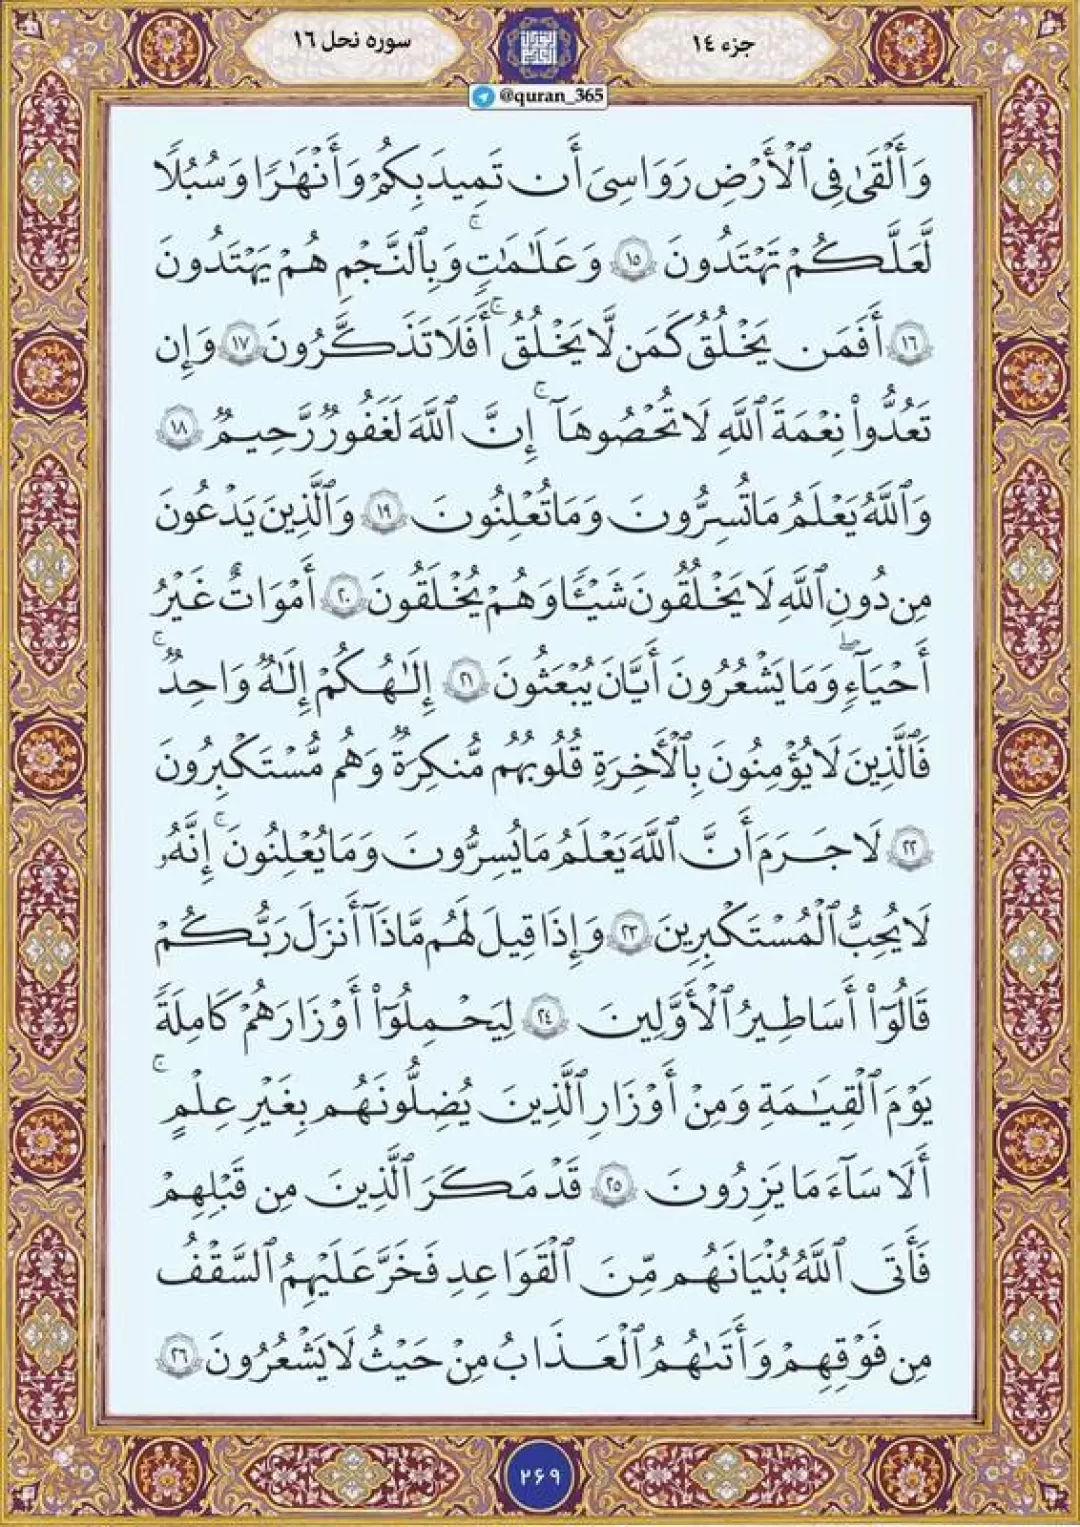 جزء ١٤
سوره نحل ١٦
@quran_365
وَأَلْقَىٰ فِي ٱلْأَرْضِ رَوَٰسِيَ أَن تَمِيدَ بِكُمْ وَأَنْهَٰرًا وَسُبُلًا
لَّعَلَّكُمْ تَهْتَدُونَ ١٥ وَعَلَٰمَٰتٍۚ وَبِٱلنَّجْمِ هُمْ يَهْتَدُونَ
١٦ أَفَمَن يَخْلُقُ كَمَن لَّا يَخْلُقُۚ أَفَلَا تَذَكَّرُونَ ١٧ وَإِن
تَعُدُّوا۟ نِعْمَةَ ٱللَّهِ لَا تُحْصُوهَآۚ إِنَّ ٱللَّهَ لَغَفُورٌ رَّحِيمٌ ١٨
وَٱللَّهُ يَعْلَمُ مَا تُسِرُّونَ وَمَا تُعْلِنُونَ ١٩ وَٱلَّذِينَ يَدْعُونَ
مِن دُونِ ٱللَّهِ لَا يَخْلُقُونَ شَيْـًٔا وَهُمْ يُخْلَقُونَ ٢٠ أَمْوَاتٌ غَيْرُ
أَحْيَآءٍۖ وَمَا يَشْعُرُونَ أَيَّانَ يُبْعَثُونَ ٢١ إِلَٰهُكُمْ إِلَٰهٌ وَاحِدٌۚ
فَٱلَّذِينَ لَا يُؤْمِنُونَ بِٱلْأَخِرَةِ قُلُوبُهُم مُّنكِرَةٌ وَهُم مُّسْتَكْبِرُونَ
٢٢ لَا جَرَمَ أَنَّ ٱللَّهَ يَعْلَمُ مَا يُسِرُّونَ وَمَا يُعْلِنُونَۚ إِنَّهُۥ
لَا يُحِبُّ ٱلْمُسْتَكْبِرِينَ ٢٣ وَإِذَا قِيلَ لَهُم مَّاذَآ أَنزَلَ رَبُّكُمْ
قَالُوٓا۟ أَسَاطِيرُ ٱلْأَوَّلِينَ ٢٤ لِيَحْمِلُوٓا۟ أَوْزَارَهُمْ كَامِلَةً
يَوْمَ ٱلْقِيَٰمَةِ وَمِنْ أَوْزَارِ ٱلَّذِينَ يُضِلُّونَهُم بِغَيْرِ عِلْمٍۚ
أَلَا سَآءَ مَا يَزِرُونَ ٢٥ قَدْ مَكَرَ ٱلَّذِينَ مِن قَبْلِهِمْ
فَأَتَى ٱللَّهُ بُنْيَانَهُم مِّنَ ٱلْقَوَاعِدِ فَخَرَّ عَلَيْهِمُ ٱلسَّقْفُ
مِن فَوْقِهِمْ وَأَتَىٰهُمُ ٱلْعَذَابُ مِنْ حَيْثُ لَا يَشْعُرُونَ ٢٦
٢٦٩